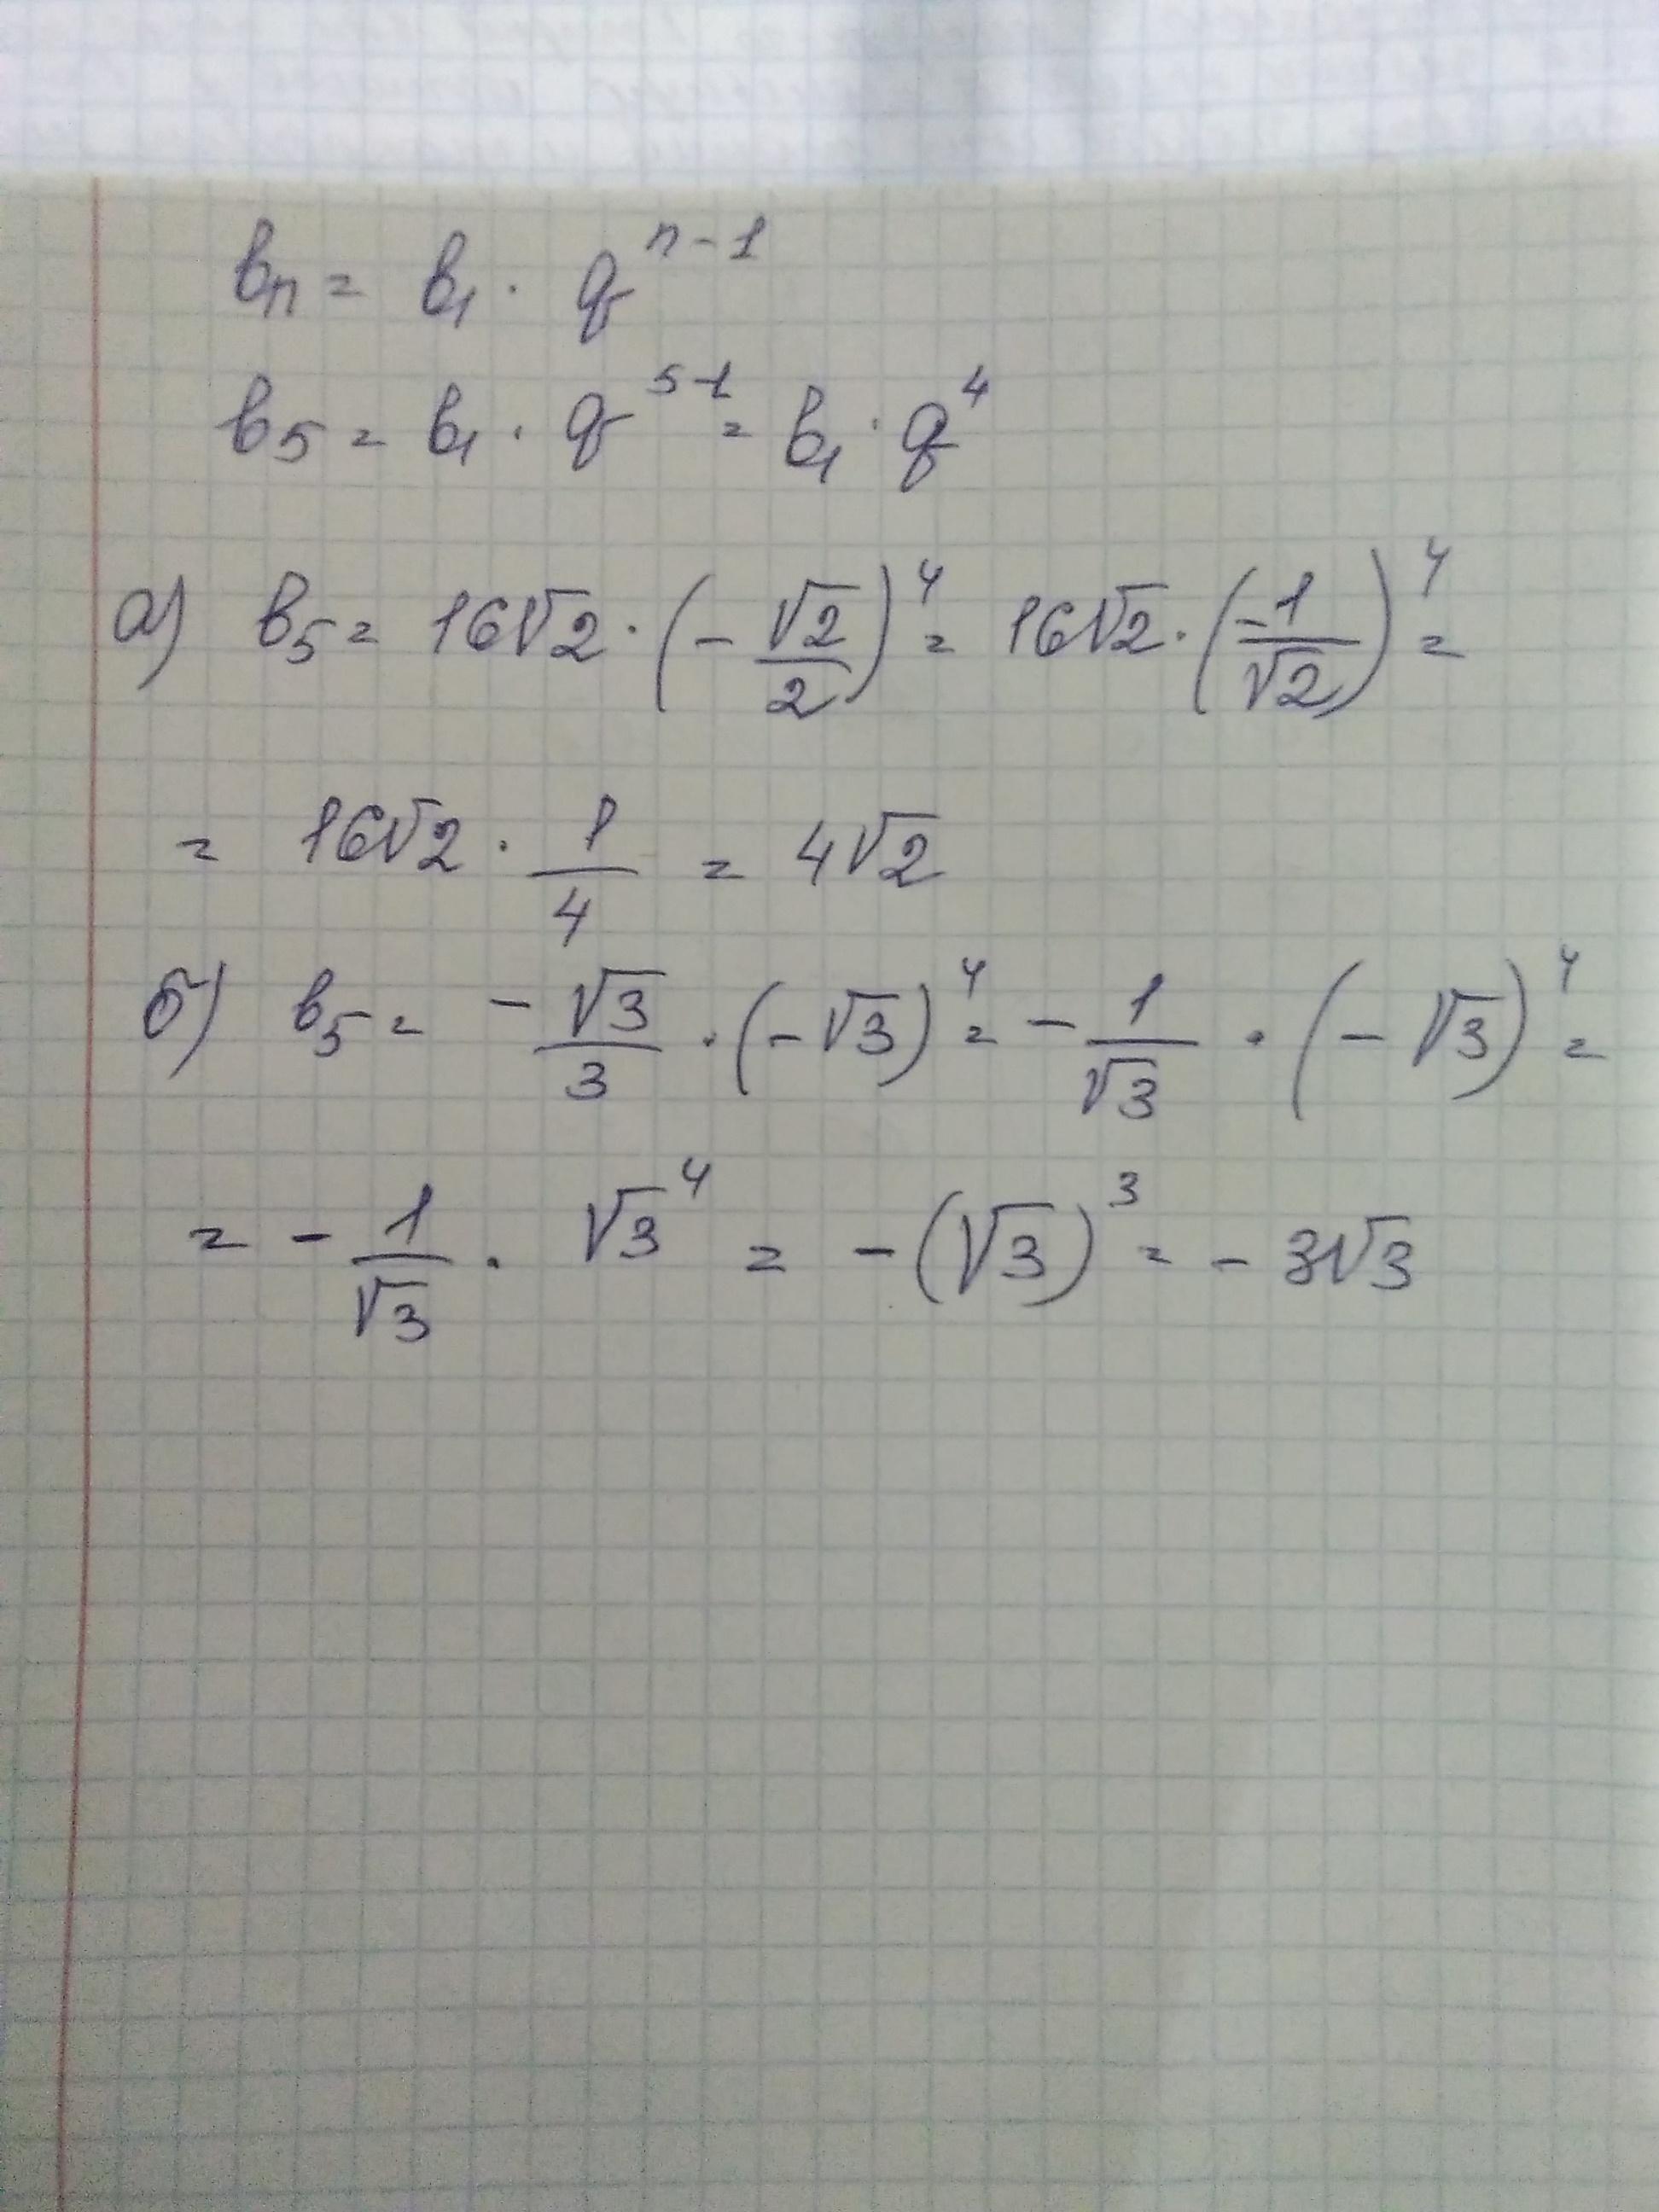 bn = b1 · q^(n-1)
b5 = b1 · q^(5-1) = b1 · q^4
а) b5 = 16√2 · (- √2/2)^4 = 16√2 · (-1/√2)^4 =
= 16√2 · 1/4 = 4√2
б) b5 = - √3/3 · (-√3)^4 = - 1/√3 · (- √3)^4 =
= - 1/√3 · √3^4 = -(√3)^3 = - 3√3